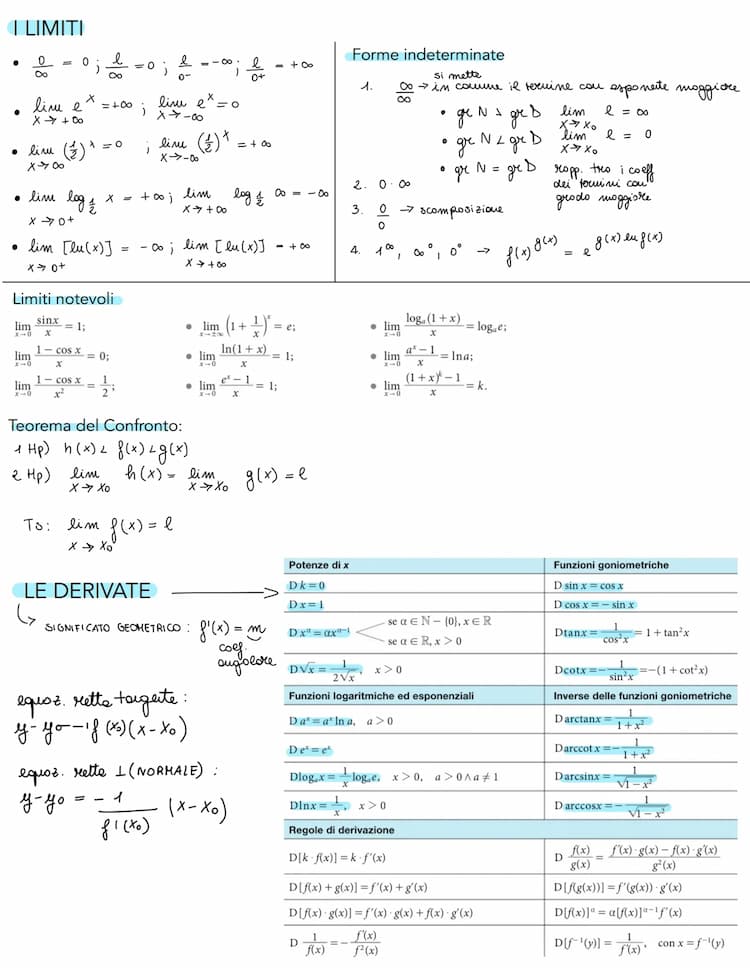 I LIMITI
• 0/∞ = 0 ; ℓ/∞ = 0 ; ℓ/0- = -∞ ; ℓ/0+ = +∞
• lim x→+∞ e^x = +∞ ; lim x→-∞ e^x = 0
• lim x→∞ (1/2)^x = 0 ; lim x→-∞ (1/2)^x = +∞
• lim x→0+ log_1/2 x = +∞ ; lim x→+∞ log_1/2 ∞ = -∞
• lim x→0+ [ln(x)] = -∞ ; lim x→+∞ [ln(x)] = +∞
Forme indeterminate
si mette
1. ∞/∞ → in comune il termine con esponente maggiore
• gr N > gr D lim x→x₀ ℓ = ∞
• gr N < gr D lim x→x₀ ℓ = 0
• gr N = gr D rapp. tra i coeff
dei termini con
grado maggiore
2. 0·∞
3. 0/0 → scomposizione
4. 1^∞, ∞^0, 0^0 → f(x)^g(x) = e^g(x) ln f(x)
Limiti notevoli
lim x→0 sinx/x = 1; • lim x→±∞ (1 + 1/x)^x = e; • lim x→0 logₐ(1 + x)/x = logₐe;
lim x→0 1 − cos x/x = 0; • lim x→0 ln(1 + x)/x = 1; • lim x→0 a^x − 1/x = lna;
lim x→0 1 − cos x/x² = 1/2; • lim x→0 e^x − 1/x = 1; • lim x→0 (1 + x)^k − 1/x = k.
Teorema del Confronto:
1 Hp) h(x) < f(x) < g(x)
2 Hp) lim x→x₀ h(x) = lim x→x₀ g(x) = ℓ
Ts: lim x→x₀ f(x) = ℓ
LE DERIVATE
SIGNIFICATO GEOMETRICO : f'(x) = m
coef.
angolare
equaz. retta tangente :
y-y₀ = f'(x₀)(x-x₀)
equaz. retta ⊥ (NORMALE) :
y-y₀ = -1/f'(x₀) (x-x₀)
Potenze di x
Funzioni goniometriche
D k = 0
D sin x = cos x
D x = 1
D cos x = − sin x
D x^α = αx^α−1
se α ∈ ℕ − {0}, x ∈ ℝ
se α ∈ ℝ, x > 0
Dtanx = 1/cos²x = 1 + tan²x
D√x = 1/2√x, x > 0
Dcotx = −1/sin²x = −(1 + cot²x)
Funzioni logaritmiche ed esponenziali
Inverse delle funzioni goniometriche
D a^x = a^x ln a, a > 0
D arctanx = 1/1 + x²
D e^x = e^x
D arccot x = −1/1 + x²
Dlogₐx = 1/x logₐe, x > 0, a > 0 ∧ a ≠ 1
D arcsinx = 1/√1 − x²
Dlnx = 1/x, x > 0
D arccosx = −1/√1 − x²
Regole di derivazione
D[k · f(x)] = k · f'(x)
D f(x)/g(x) = f'(x) · g(x) − f(x) · g'(x)/g²(x)
D[f(x) + g(x)] = f'(x) + g'(x)
D[f(g(x))] = f'(g(x)) · g'(x)
D[f(x) · g(x)] = f'(x) · g(x) + f(x) · g'(x)
D[f(x)]^α = α[f(x)]^α−1 f'(x)
D 1/f(x) = −f'(x)/f²(x)
D[f⁻¹(y)] = 1/f'(x), con x = f⁻¹(y)